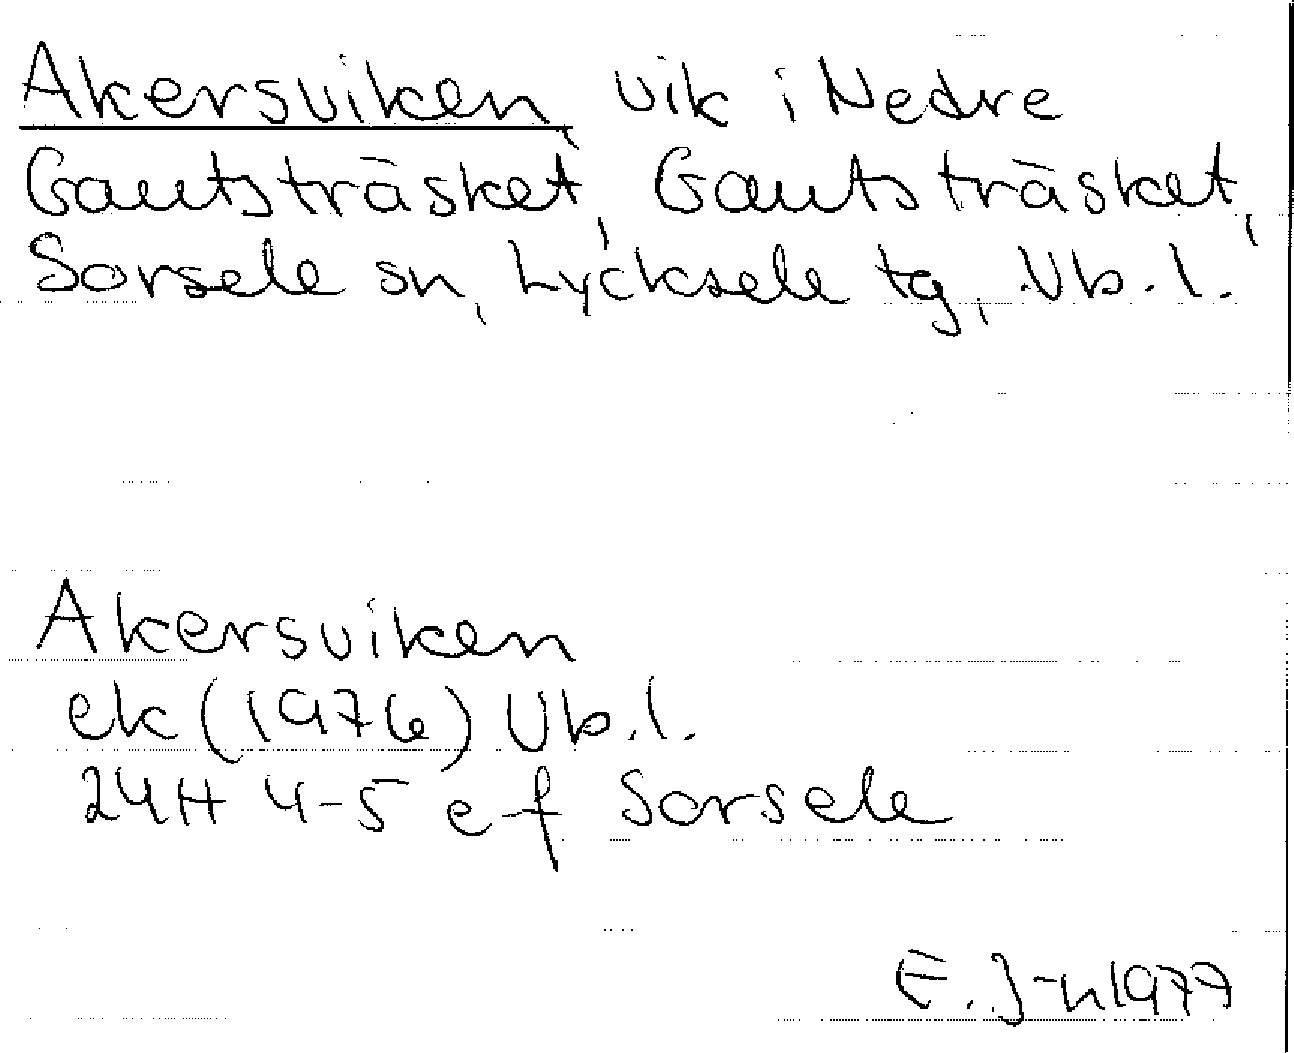 Akersviken, vik i Nedre
Gautsträsket, Gautsträsket,
Sorsele sn, Lycksele tg, Vb.l.
Akersviken
ek (1976) Vb.l.
24H 4-5 e-f Sorsele
E. J-n 1977